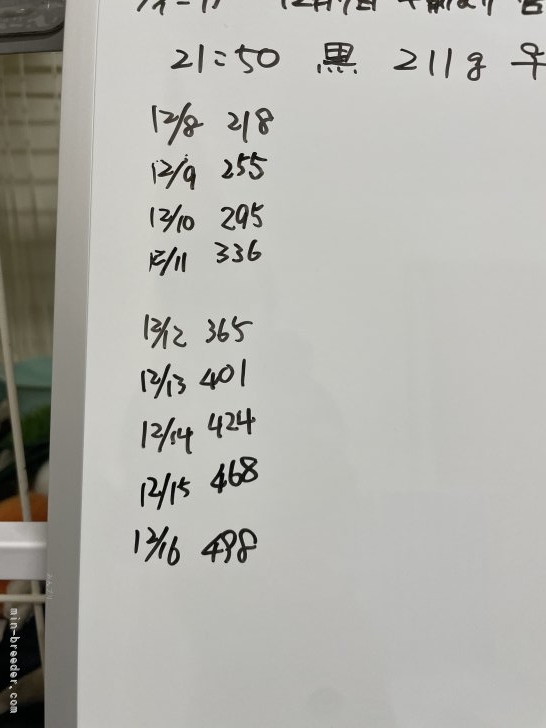 21:50 黒 211g
12/8 218
12/9 255
12/10 295
12/11 336
12/12 365
12/13 401
12/14 424
12/15 468
12/16 498
min-breeder.com